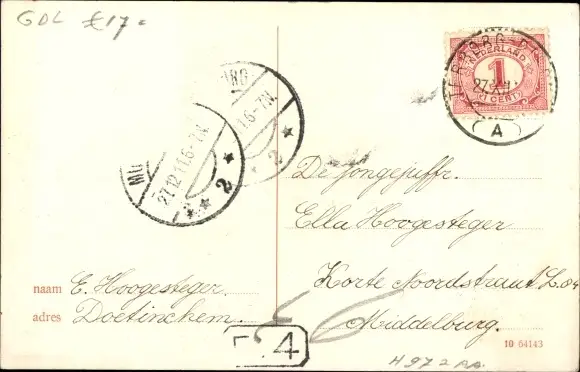 GDL £17=
NEDERLAND
1
1 CENT
A
27.12.11.6-7N.
2
De jongejuffr.
Ella Hoogesteger
Korte Noordstraat L.84
Middelburg.
naam E. Hoogesteger.
adres Doetinchem.
10 64143